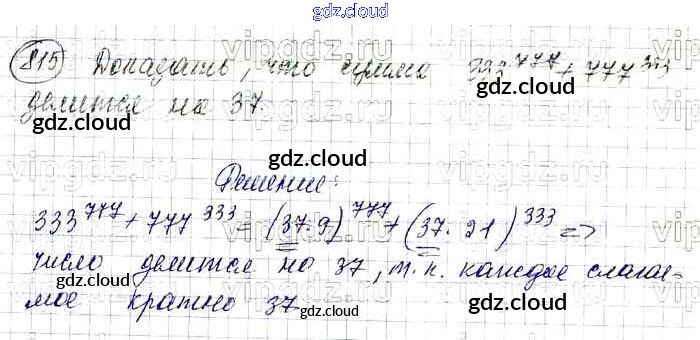 gdz.cloud
815 Доказать, что сумма 333^777 + 777^333
делится на 37.
gdz.cloud
gdz.cloud
vipgdz.ru
Решение:
333^777 + 777^333 = (37·9)^777 + (37·21)^333 =>
число делится на 37, т.к. каждое слагае-
мое кратно 37.
gdz.cloud
gdz.cloud
gdz.cloud
gdz.cloud